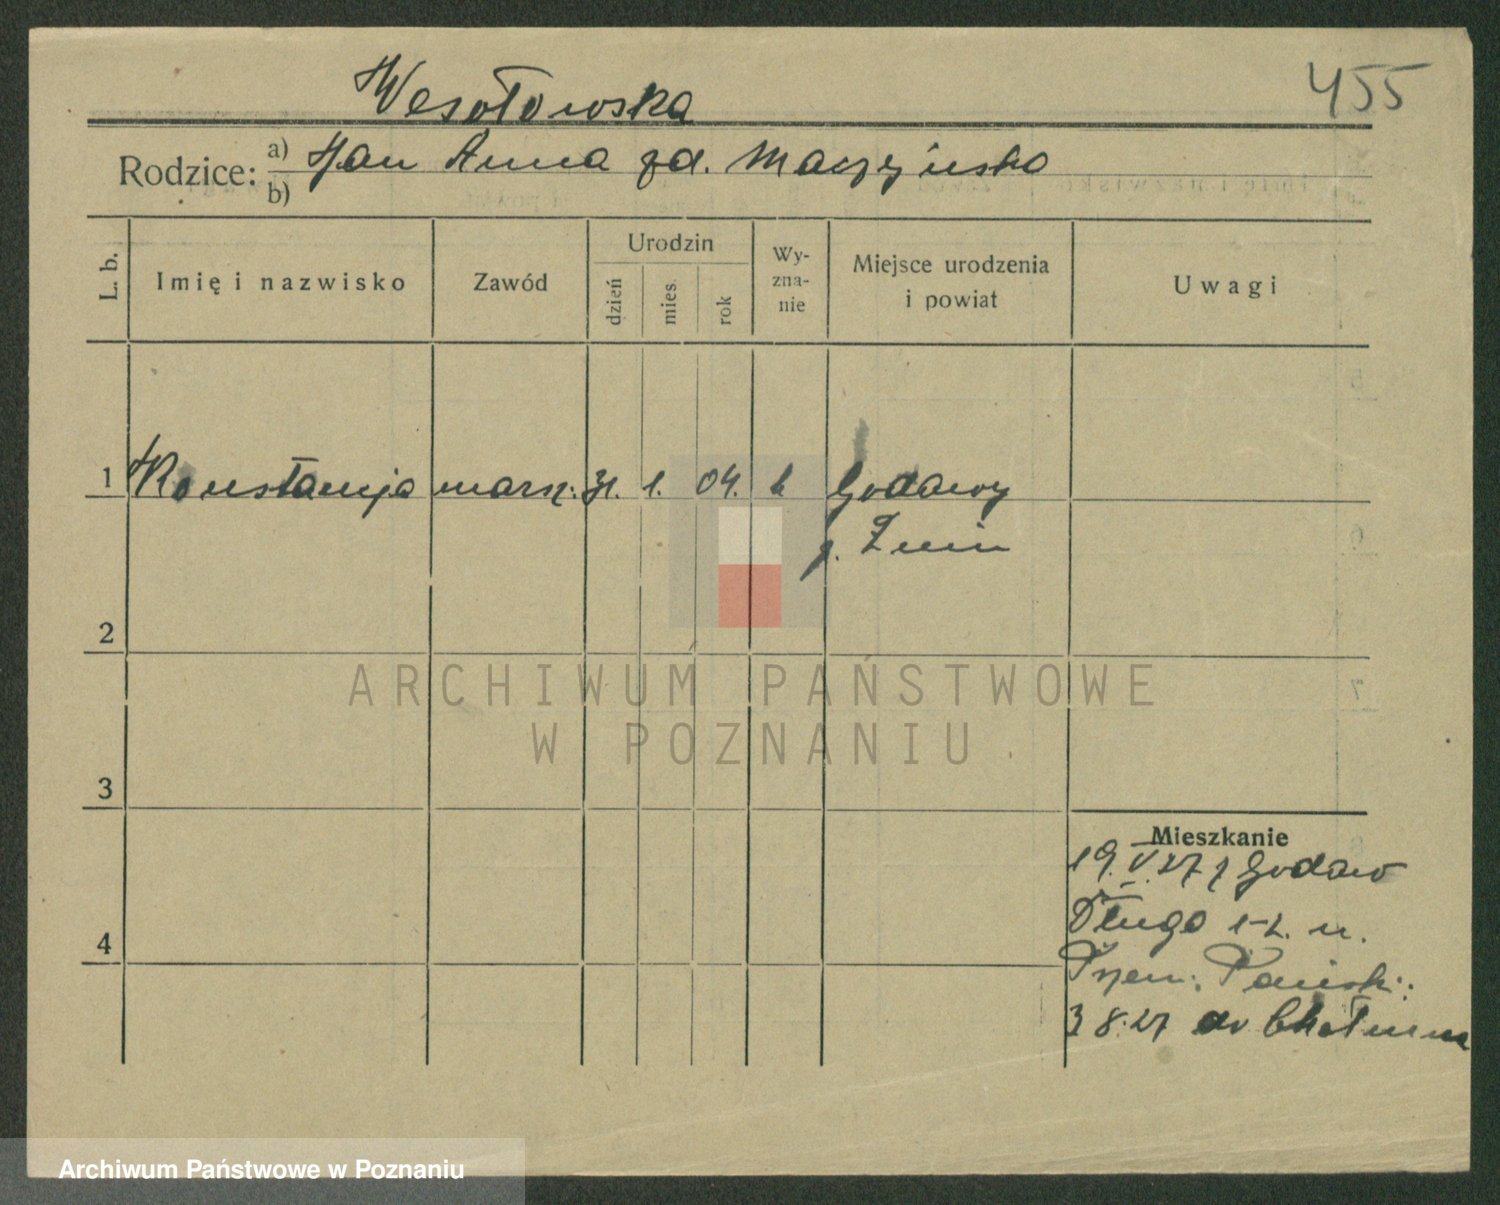 455
Wesołowska
Rodzice: a) Jan Anna zd. Maczyńska
b)
L. b. Imię i nazwisko Zawód Urodzin dzień mies. rok Wy-zna-nie Miejsce urodzenia i powiat Uwagi
1 Konstancja 31. 1. 04. k Godawy
p. Żnin
2
ARCHIWUM PAŃSTWOWE
W POZNANIU
3
Mieszkanie
19.V.27 z Godaw
4 Długa 1-2. u.
3 8.27 do
Archiwum Państwowe w Poznaniu